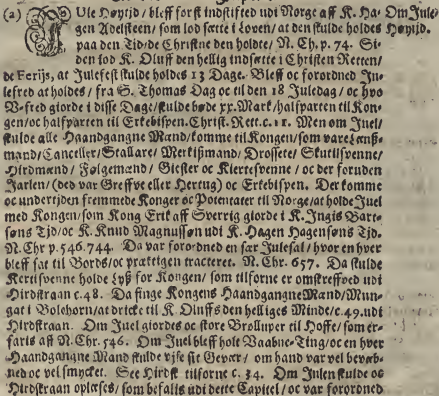 (2) JUle Høytid/ bleff først indstifted udi Norge aff K. Ha- Om Jule-
gen Adelsteen/ som lod sætte i Loven/ at den skulde holdes Høytid.
paa den Tid/de Christne den holdte/ N. Chr. p. 74. Si-
den lod K. Oluff den hellig indsætte i Christen Retten/
de Feriis, at Julefest skulde holdes 13 Dage. Bleff oc forordned Ju-
lefred at holdes/ fra S. Thomas Dag oc til den 18 Juledag/ oc hvo
V-fred giorde i disse Dage/ skulde bøde xx. Mark/ halfparten til Kon-
gen/ oc halfparten til Erkebispen. Christ. Rett. c. 11. Men om Juel/
skulde alle Haandgangne Mænd/ komme til Kongen/ som vare Lænß-
mænd/ Canceller/ Stallare/ Merkißmand/ Drossete/ Skutilsvenne/
Hirdmænd/ Følgemænd/ Giester oc Kiertesvenne/ oc der foruden
Jarlen/ (ded var Greffve eller Hertug) oc Erkebispen. Der komme
oc undertiden fremmede Konger oc Potentater til Norge/ at holde Juel
med Kongen/ som Kong Erik aff Sverrig giorde i K. Ingis Bart-
søns Tid/ oc K. Knud Magnussøn udi K. Hagen Hagensøns Tid.
N. Chr p. 546. 744. Da var forordned en sær Julesal/ hvor en hver
bleff sat til Bords/ oc præktigen tracteret. N. Chr. 657. Da skulde
Kertisvenne holde Lyß for Kongen/ som tilforne er omskreffved udi
Hirdskraan c. 48. Da finge Kongens Haandgangne Mænd/ Mun-
gat i Boleborn/ at dricke til K. Oluffs den helliges Minde/ c. 49. udi
Hirdskraan. Om Juel giordes oc store Brølluper til Hoffe/ som er-
faris aff N. Chr. 546. Om Juel bleff holt Vaabne-Ting/ oc en hver
Haandgangne Mand skulde vjse sit Gevær/ om hand var vel bevæb-
ned oc vel smycket. See Hirdsk tilforne c. 34. Om Julen skulde oc
Hirdskraan oplæses/ som befalis udi dette Capitel/ oc var forordned